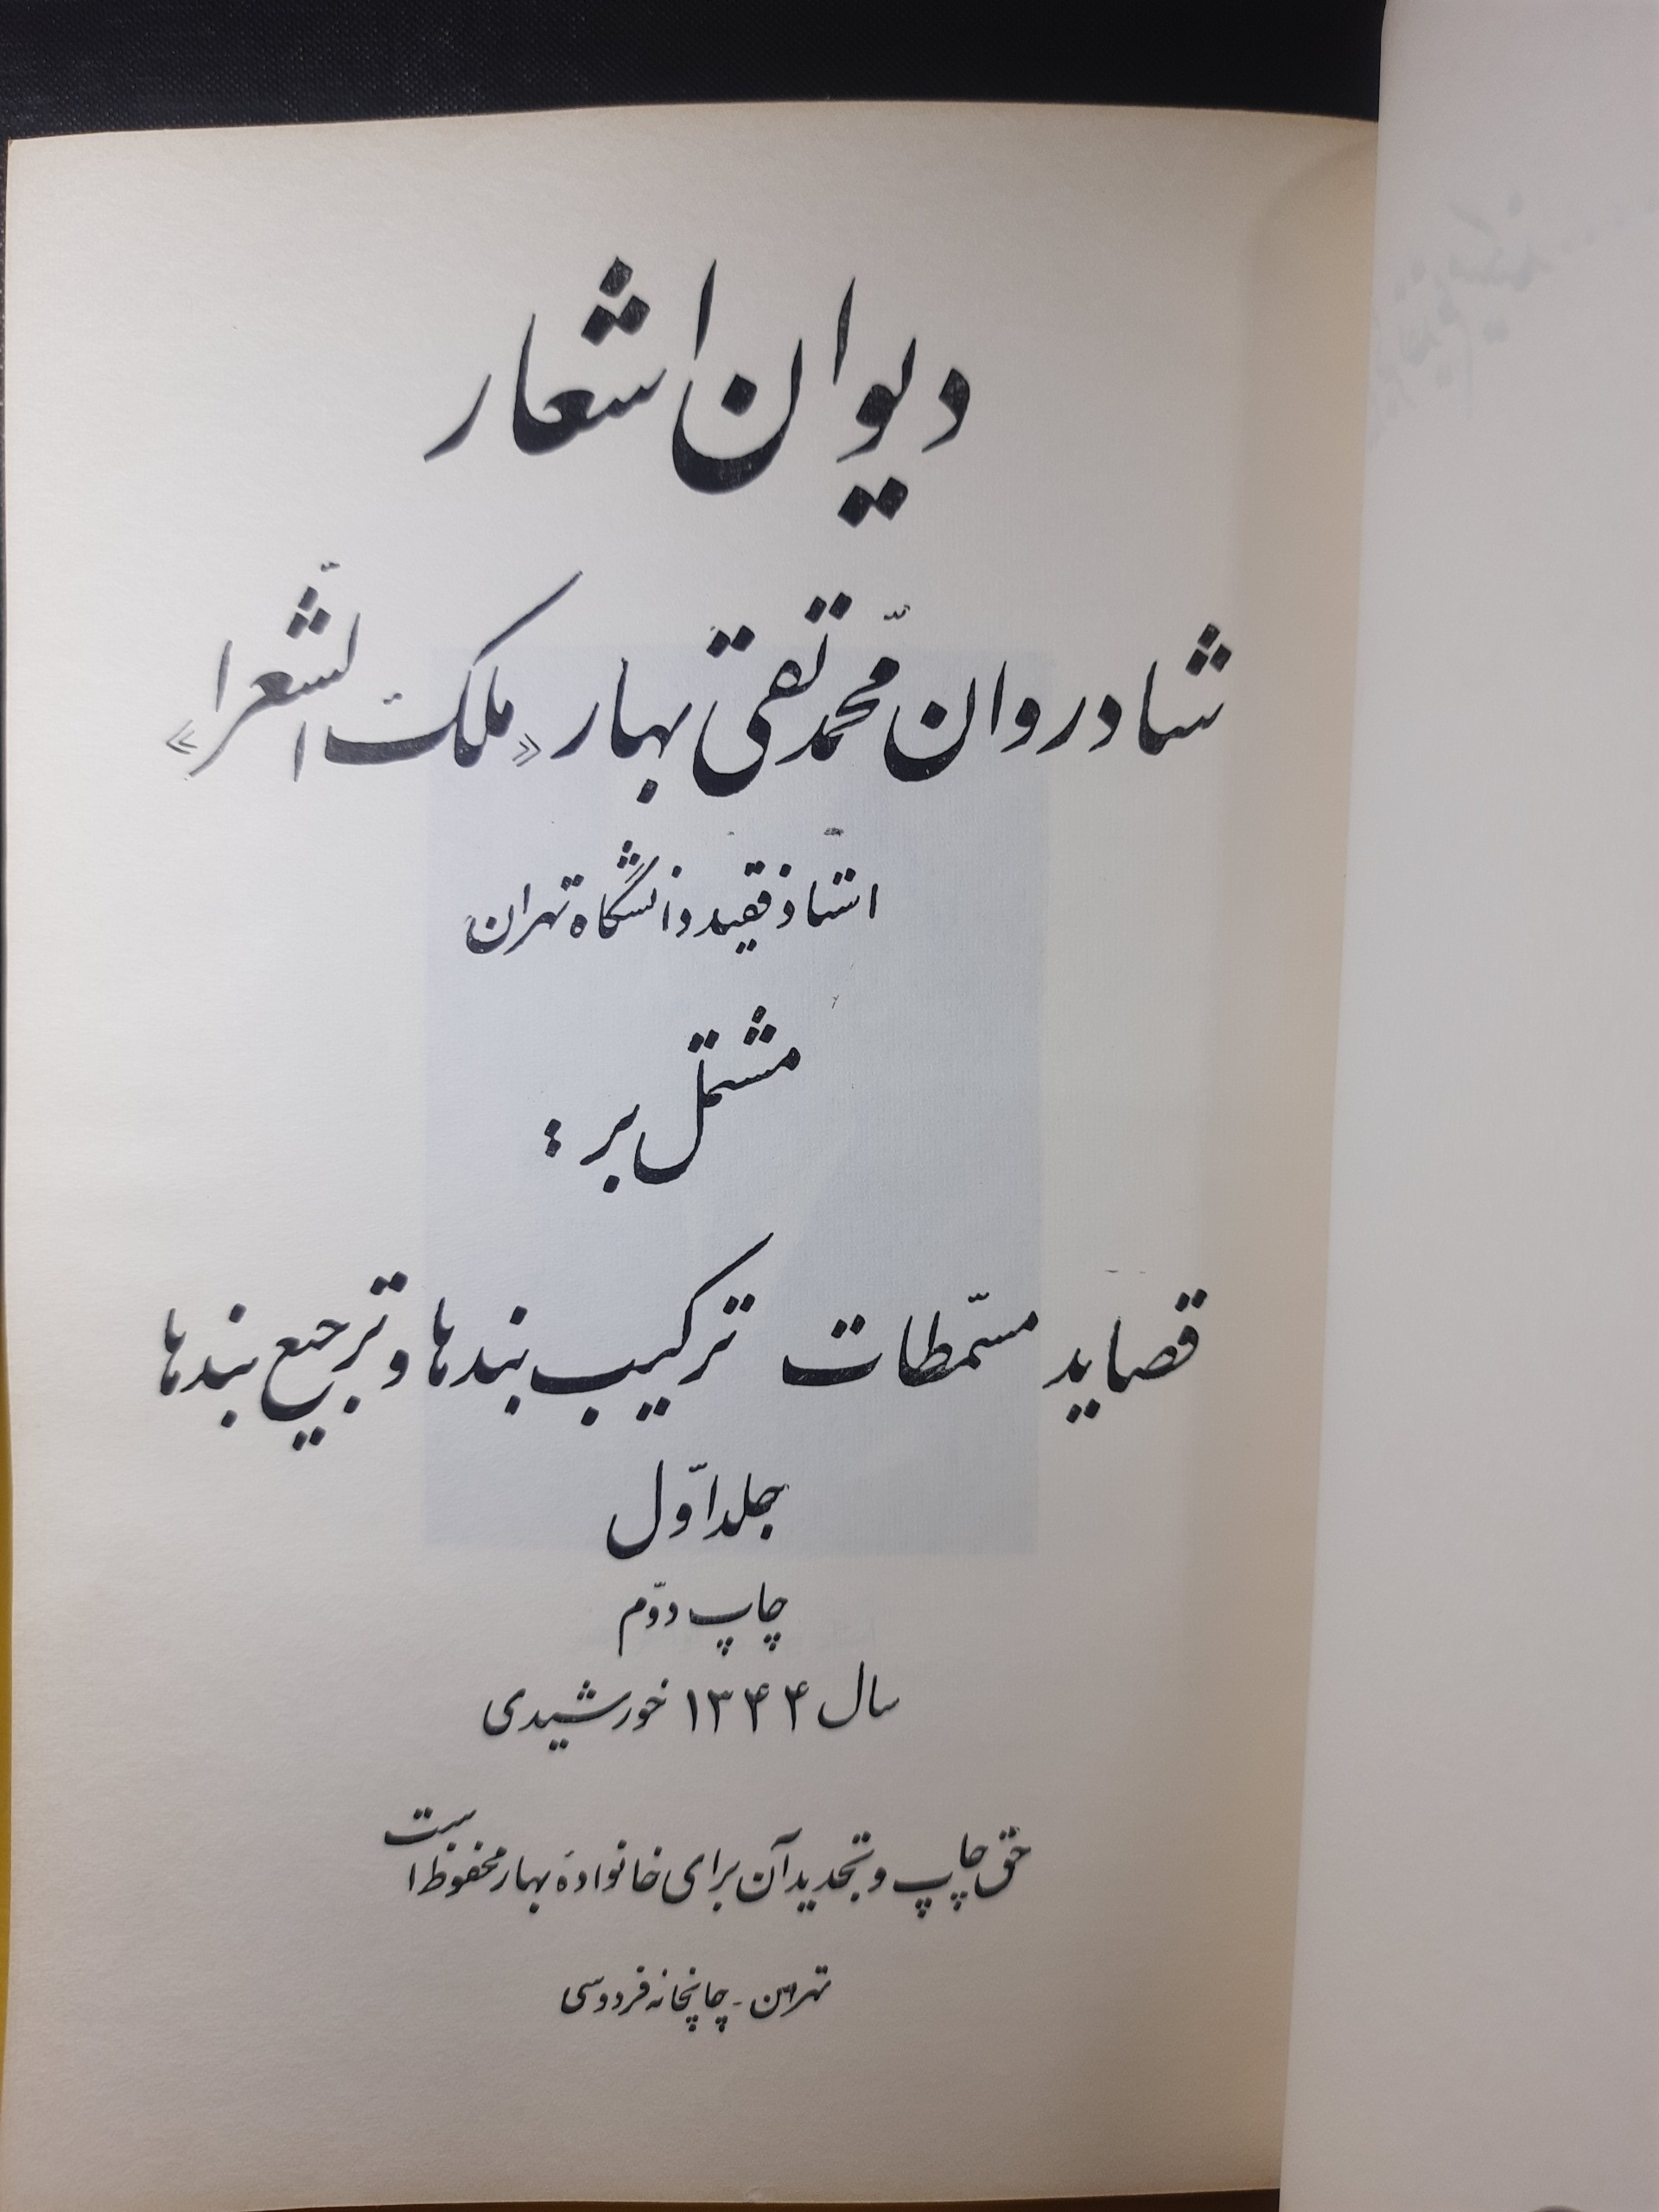 دیوان اشعار
شادروان محمّد تقی بهار «ملک الشّعرا»
استاد فقید دانشگاه تهران
مشتمل بر :
قصاید مسمّطات ترکیب بندها و ترجیع بندها
جلد اوّل
چاپ دوّم
سال ۱۳۴۴ خورشیدی
حق چاپ و تجدید آن برای خانوادهٔ بهار محفوظ است
تهران - چاپخانه فردوسی